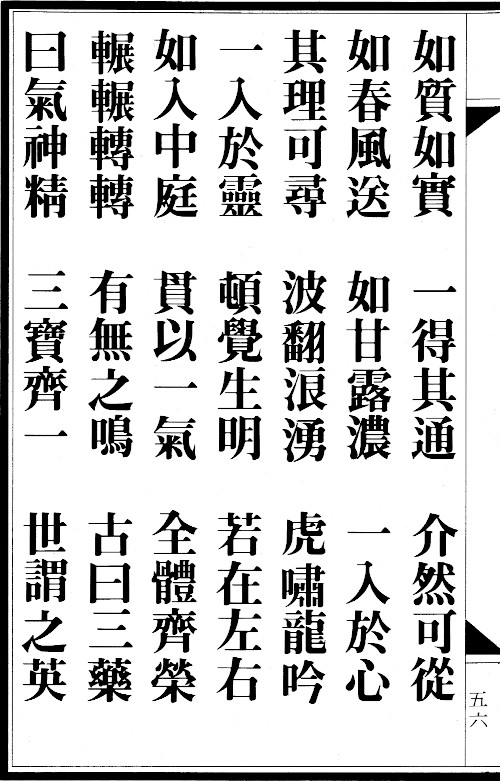 如質如實　一得其通　介然可從
如春風送　如甘露濃　一入於心
其理可尋　波翻浪湧　虎嘯龍吟
一入於靈　頓覺生明　若在左右
如入中庭　貫以一氣　全體齊榮
輾輾轉轉　有無之鳴　古曰三藥
曰氣神精　三寶齊一　世謂之英
五六